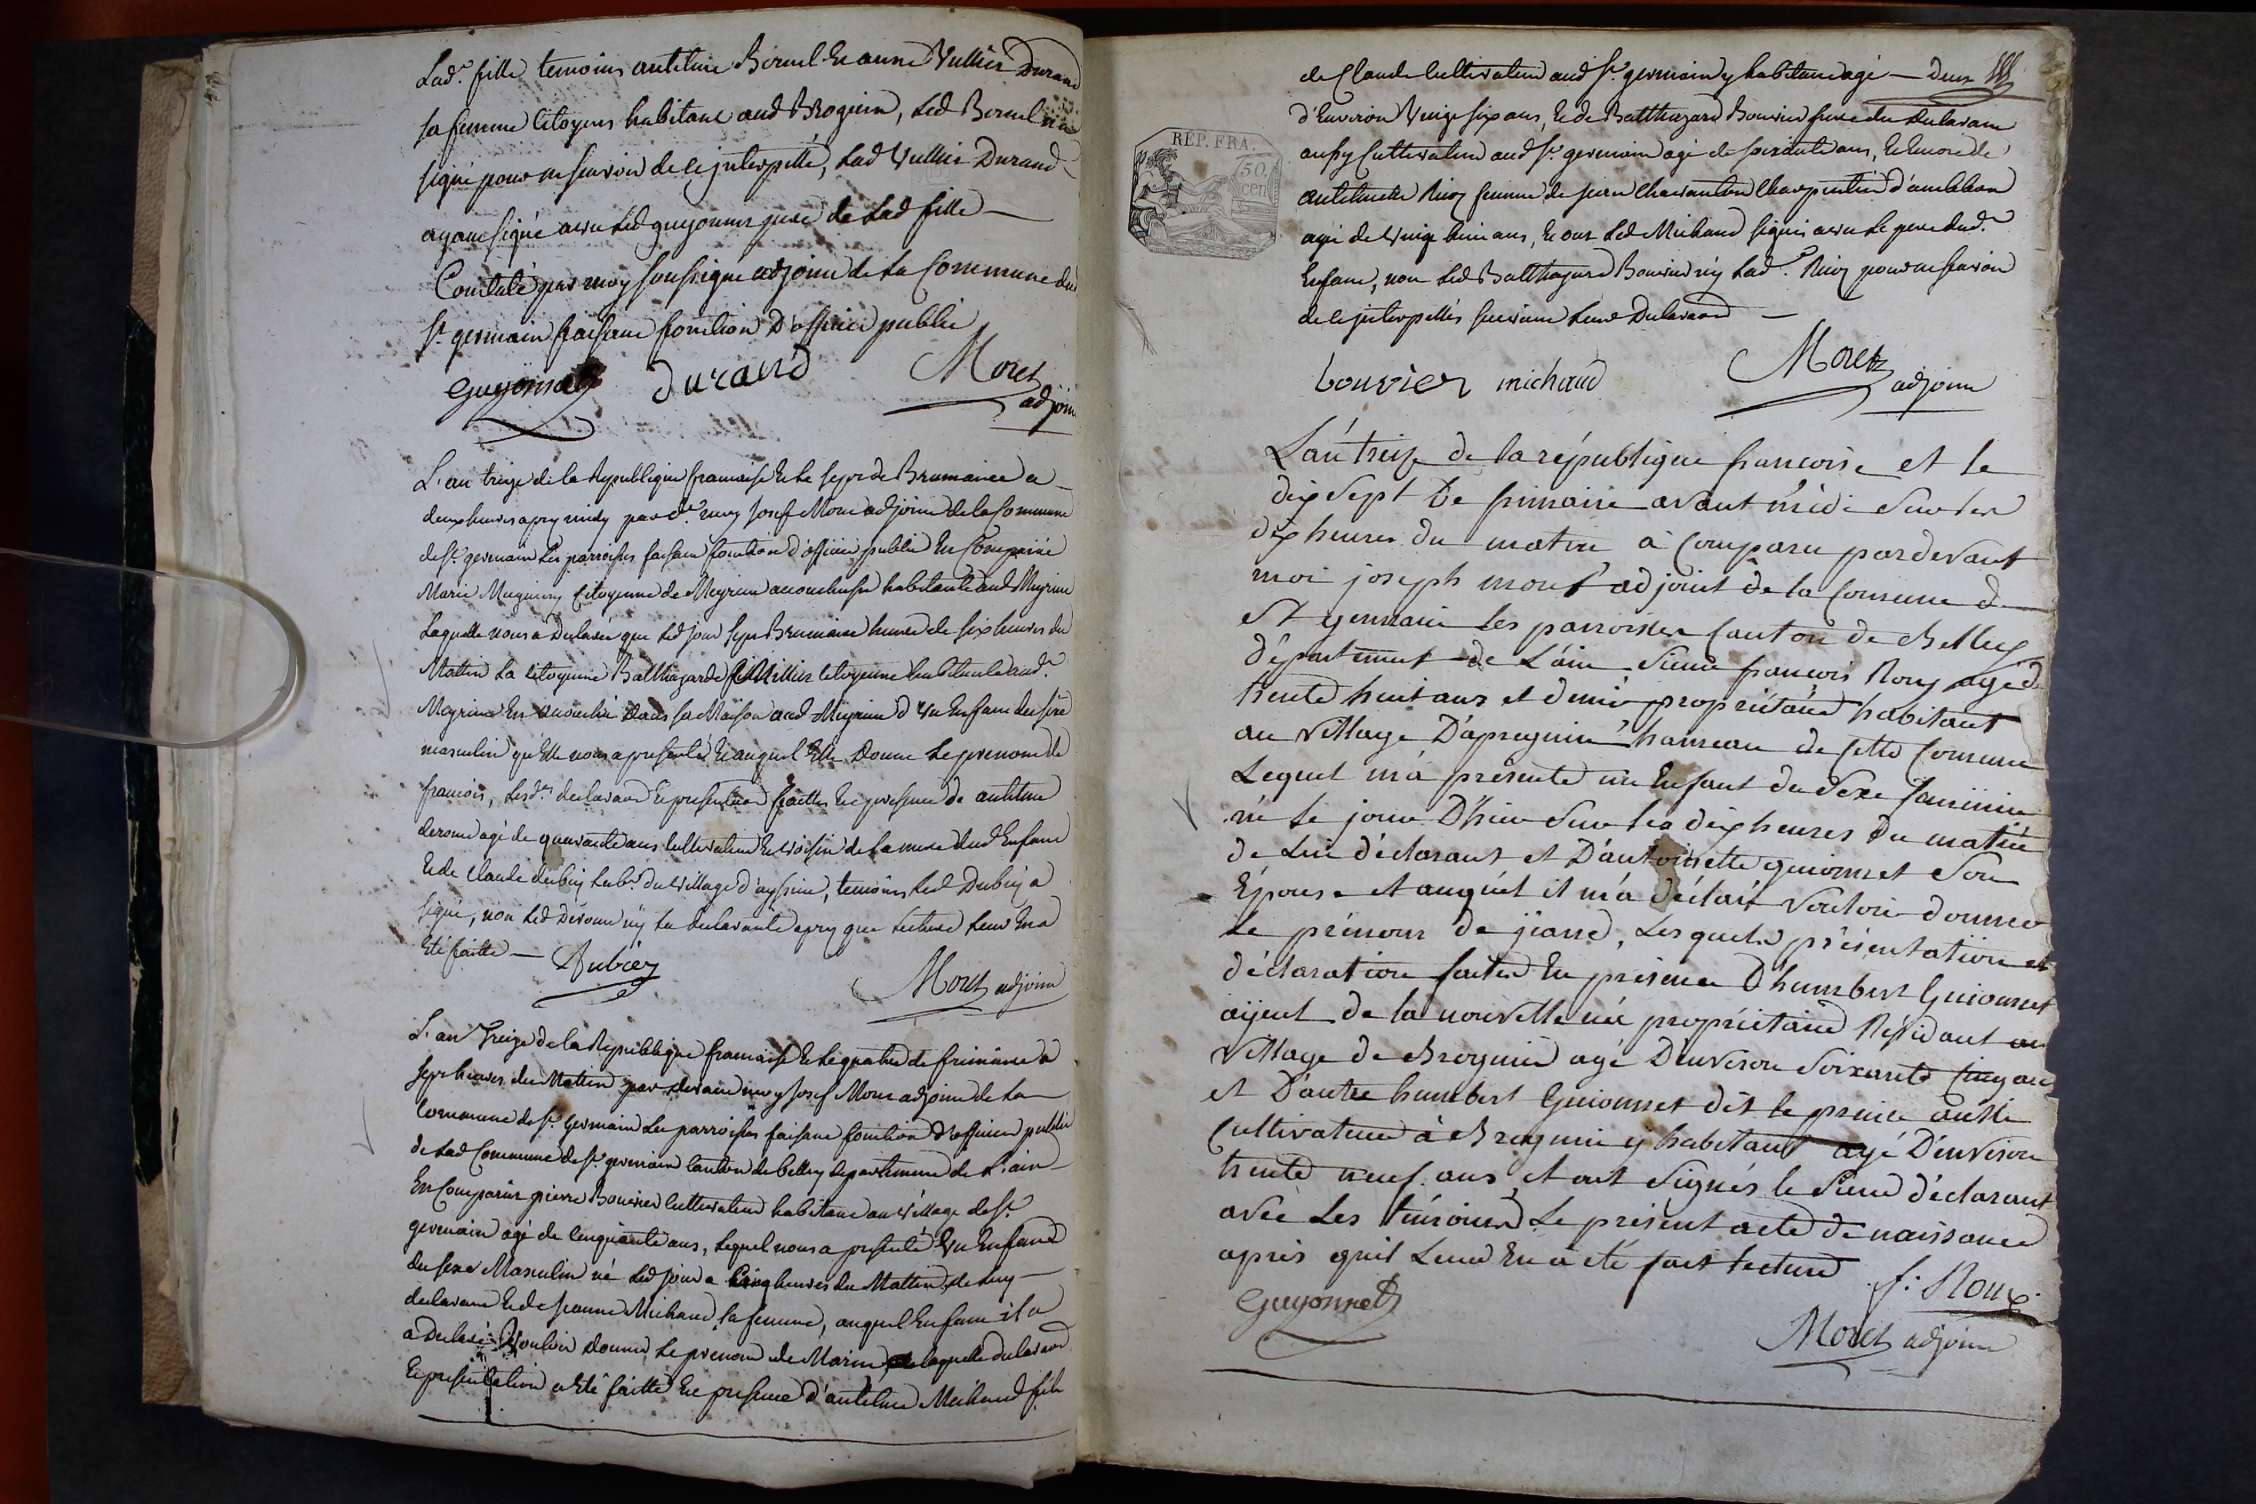 Lad.e fille temoins antelme Bornel Et anne Vullier Durand
sa femme Citoyens habitant aud Brognin, Led Bornel n'a
signé pour ne scavoir de ce interpellé, Lad Vullier Durand
ayant signé avec Led guyonnet pere de Lad fille —
Constaté par moy soussigné adjoint de La Commune de
St. germain faisant fonction D'officier public
Guyonnet durand Moret
adjoint
L'an treize de la Republique francaise Et Le sept de Brumaire a
deux heures apres midy par d.t moy Josef Moret adjoint de la Commune
de St. germain Les parroisses faisant fonction d'officier public En Comparüe
Marie Citoyenne de Meyrieu accoucheuse habitante aud Meyrieu
Laquelle nous a Declarée que Led jour sept Brumaire heure de six heures du
Mattin La Citoyenne Balthazarde Citoyenne habitante aud.
Meyrieu Est accouchée dans sa Maison aud Meyrieu d'Un Enfant du sexe
masculin qu'Elle nous a presenté Et auquel Elle Donne Le prenom de
francois, Lesd.es declaration Et presentation faittes En presence de antelme
derome agé de quarante ans Cultivateur Et voisin de la mere dud Enfant
Et de Claude dubiey hab.t du village d'ayssieu, temoins Led Dubiey a
signé, non Led Derome ny La declarante apres que Lecture Leur En a
Eté faitte — Dubiey
Moret adjoint
L'an Treize de la Republique francaise Et Le quatre de frimaire a
sept heures du Mattin par devant moy Josef Moret adjoint de La
Commune de St. germain Les parroisses faisant fonction D'officier public
de Lad Commune de St. germain Canton de belley departement de L'ain
Est Comparüe pierre Bouvier Cultivateur habitant au village de St.
germain agé de Cinquante ans, Lequel nous a presenté Un Enfant
du sexe Masculin né Led jour a Cinq heures du Mattin de luy
declarant Et de jeanne Michaud sa femme, auquel Enfant il a
a declaré Vouloir donner Le prenom de Marin, laquelle declaration
Et presentation a Eté faitte En presence d'antelme Michaud fils
de Claude Cultivateur aud St. germain y habitant agé —
d'Environ Vingt six ans, Et de Balthazard Bouvier frere du declarant
aussy Cultivateur aud St. germain agé de soixante ans, Et Encore de
femme de pierre Charpentier d'ambleon
agée de Vingt huit ans, Et ont Led Michaud signé avec Le pere dud.
Enfant, non Led Balthazard Bouvier ny Lad.e pour ne scavoir
de ce interpellés suivant Leur Declaration —
REP. FRA.
50
cen
bouvier michaud Moret
adjoint
L'an treize de la république francoise et le
dix sept de frimaire avant midi sur les
dix heures du matin à comparu pardevant
moi joseph moret adjoint de la Comune de
St germain Les parroisses Canton de Belley
département de L'ain Sieur françois Roux agé de
trente huit ans et demi propriétaire habitant
au village D'apregnin hameau de cette Comune
Lequel m'a présenté un Enfant du Sexe féminin
né le jour D'hier Sur les dix heures du matin
de Lui déclarant et D'antoinette guionnet Son
Épouse et auquel il m'a déclaré vouloir donner
le prénom de jeanne, Lesquels présentation et
déclaration faites En présence D'humbert Guionnet
aÿeul de la nouvelle née propriétaire Résidant au
village de Brognin agé D'environ Soixante cinq ans
et D'autre humbert Guionnet dit le prince aussi
Cultivateur à Brognin y habitant agé D'environ
trente neuf ans, et ont Signés le Sieur déclarant
avec Les témoins Le présent acte de naissance
après qu'il Leur En a été fait lecture
f. Roux
Guyonnet
Moret adjoint